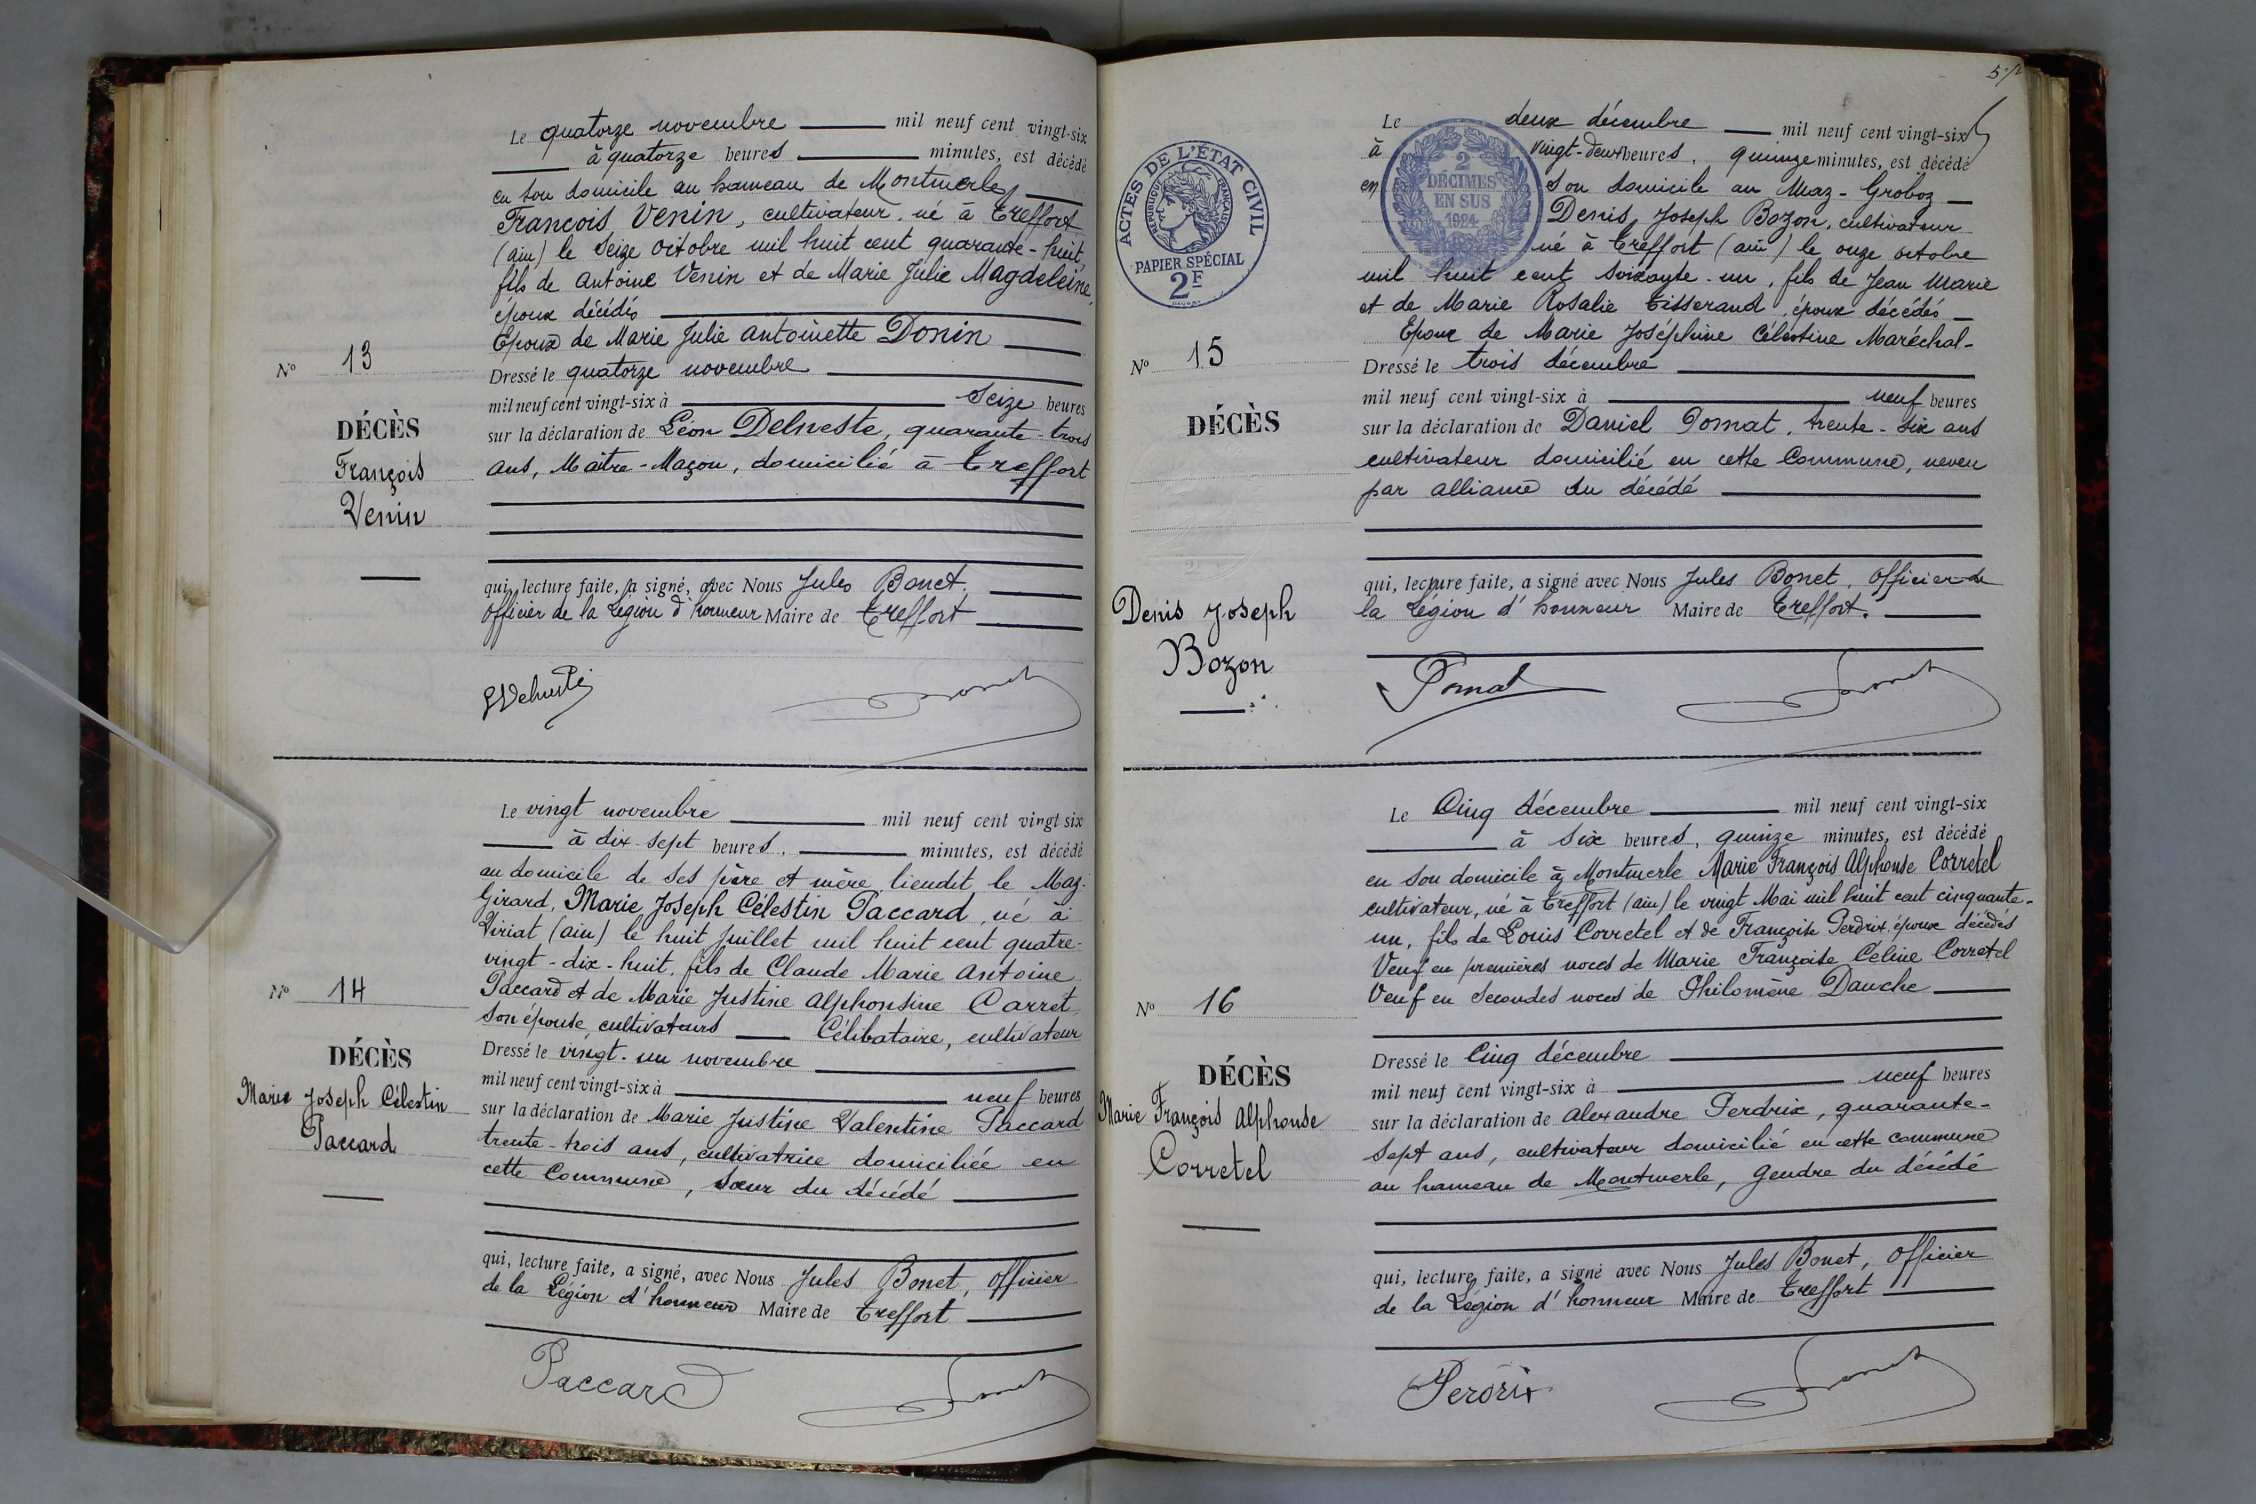 Le quatorze novembre mil neuf cent vingt-six
à quatorze heures minutes, est décédé
en son domicile au hameau de Montmerle
François Venin, cultivateur, né à Treffort
(ain) le seize octobre mil huit cent quarante-huit,
fils de Antoine Venin et de Marie Julie Magdeleine,
époux décédés
Epoux de Marie Julie Antoinette Donin
N° 13
Dressé le quatorze novembre
mil neuf cent vingt-six à seize heures
DÉCÈS
sur la déclaration de Léon Delveste, quarante-trois
François
ans, Maître-Maçon, domicilié à Treffort
Venin
qui, lecture faite, a signé, avec Nous Jules Bonet.
officier de la Légion d'honneur Maire de Treffort
Bonet
Le vingt novembre mil neuf cent vingt six
à dix-sept heures, minutes, est décédé
au domicile de ses père et mère lieudit le Maz-
Girard, Marie Joseph Célestin Paccard, né à
Viriat (ain) le huit juillet mil huit cent quatre-
vingt-dix-huit, fils de Claude Marie Antoine
Paccard et de Marie Justine Alphonsine Carret
N° 14
son épouse, cultivateurs Célibataire, cultivateur
DÉCÈS
Dressé le vingt-un novembre
mil neuf cent vingt-six à neuf heures
Marie Joseph Célestin
Paccard
sur la déclaration de Marie Justine Valentine Paccard
trente-trois ans, cultivatrice domiciliée en
cette Commune, sœur du décédé
qui, lecture faite, a signé, avec Nous Jules Bonet, officier
de la Légion d'honneur Maire de Treffort
Paccard Bonet
ACTES DE L'ÉTAT CIVIL
RÉPUBLIQUE FRANÇAISE
PAPIER SPÉCIAL
2F
2
DÉCIMES
EN SUS
1924
Le deux décembre mil neuf cent vingt-six
à vingt-deux heures, quinze minutes, est décédé
en son domicile au Maz-Groboz
Denis Joseph Bozon, cultivateur
né à Treffort (ain) le onze octobre
mil huit cent soixante-un, fils de Jean Marie
et de Marie Rosalie Tisserand, époux décédés
Epoux de Marie Joséphine Célestine Maréchal-
N° 15
Dressé le trois décembre
mil neuf cent vingt-six à neuf heures
DÉCÈS
sur la déclaration de Daniel Pomat, trente-six ans
cultivateur domicilié en cette Commune, neveu
par alliance du décédé
qui, lecture faite, a signé avec Nous Jules Bonet, officier de
la Légion d'honneur Maire de Treffort.
Denis Joseph
Bozon
Pomat Bonet
Le Cinq décembre mil neuf cent vingt-six
à six heures, quinze minutes, est décédé
en son domicile à Montmerle Marie François Alphonse Corretel
cultivateur, né à Treffort (ain) le vingt Mai mil huit cent cinquante-
un, fils de Louis Corretel et de Françoise Perdrix, époux décédés
Veuf en premières noces de Marie Françoise Céline Corretel
Veuf en secondes noces de Philomène Dauche
N° 16
DÉCÈS
Dressé le Cinq décembre
mil neuf cent vingt-six à neuf heures
Marie François Alphonse
Corretel
sur la déclaration de Alexandre Perdrix, quarante-
sept ans, cultivateur domicilié en cette commune
au hameau de Montmerle, gendre du décédé
qui, lecture faite, a signé avec Nous Jules Bonet, officier
de la Légion d'honneur Maire de Treffort
Perdrix Bonet